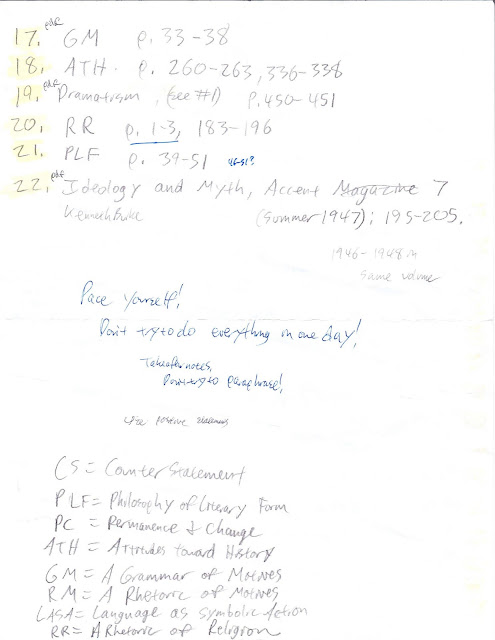 17. pdf GM p. 33-38
18. ATH. p. 260-263, 336-338
19. pdf Dramatism, (see #1) p. 450-451
20. RR p. 1-3, 183-196
21. PLF p. 39-51 46-51?
22. pdf Ideology and Myth, Accent Magazine 7
Kenneth Burke (Summer 1947): 195-205.
1946-1948 in
same volume
Pace yourself!
Don't try to do everything in one day!
Take after notes.
Don't try to paraphrase!
Use positive statements
CS = Counter Statement
PLF = Philosophy of Literary Form
PC = Permanence & Change
ATH = Attitudes toward History
GM = A Grammar of Motives
RM = A Rhetoric of Motives
LASA = Language as Symbolic Action
RR = A Rhetoric of Religion